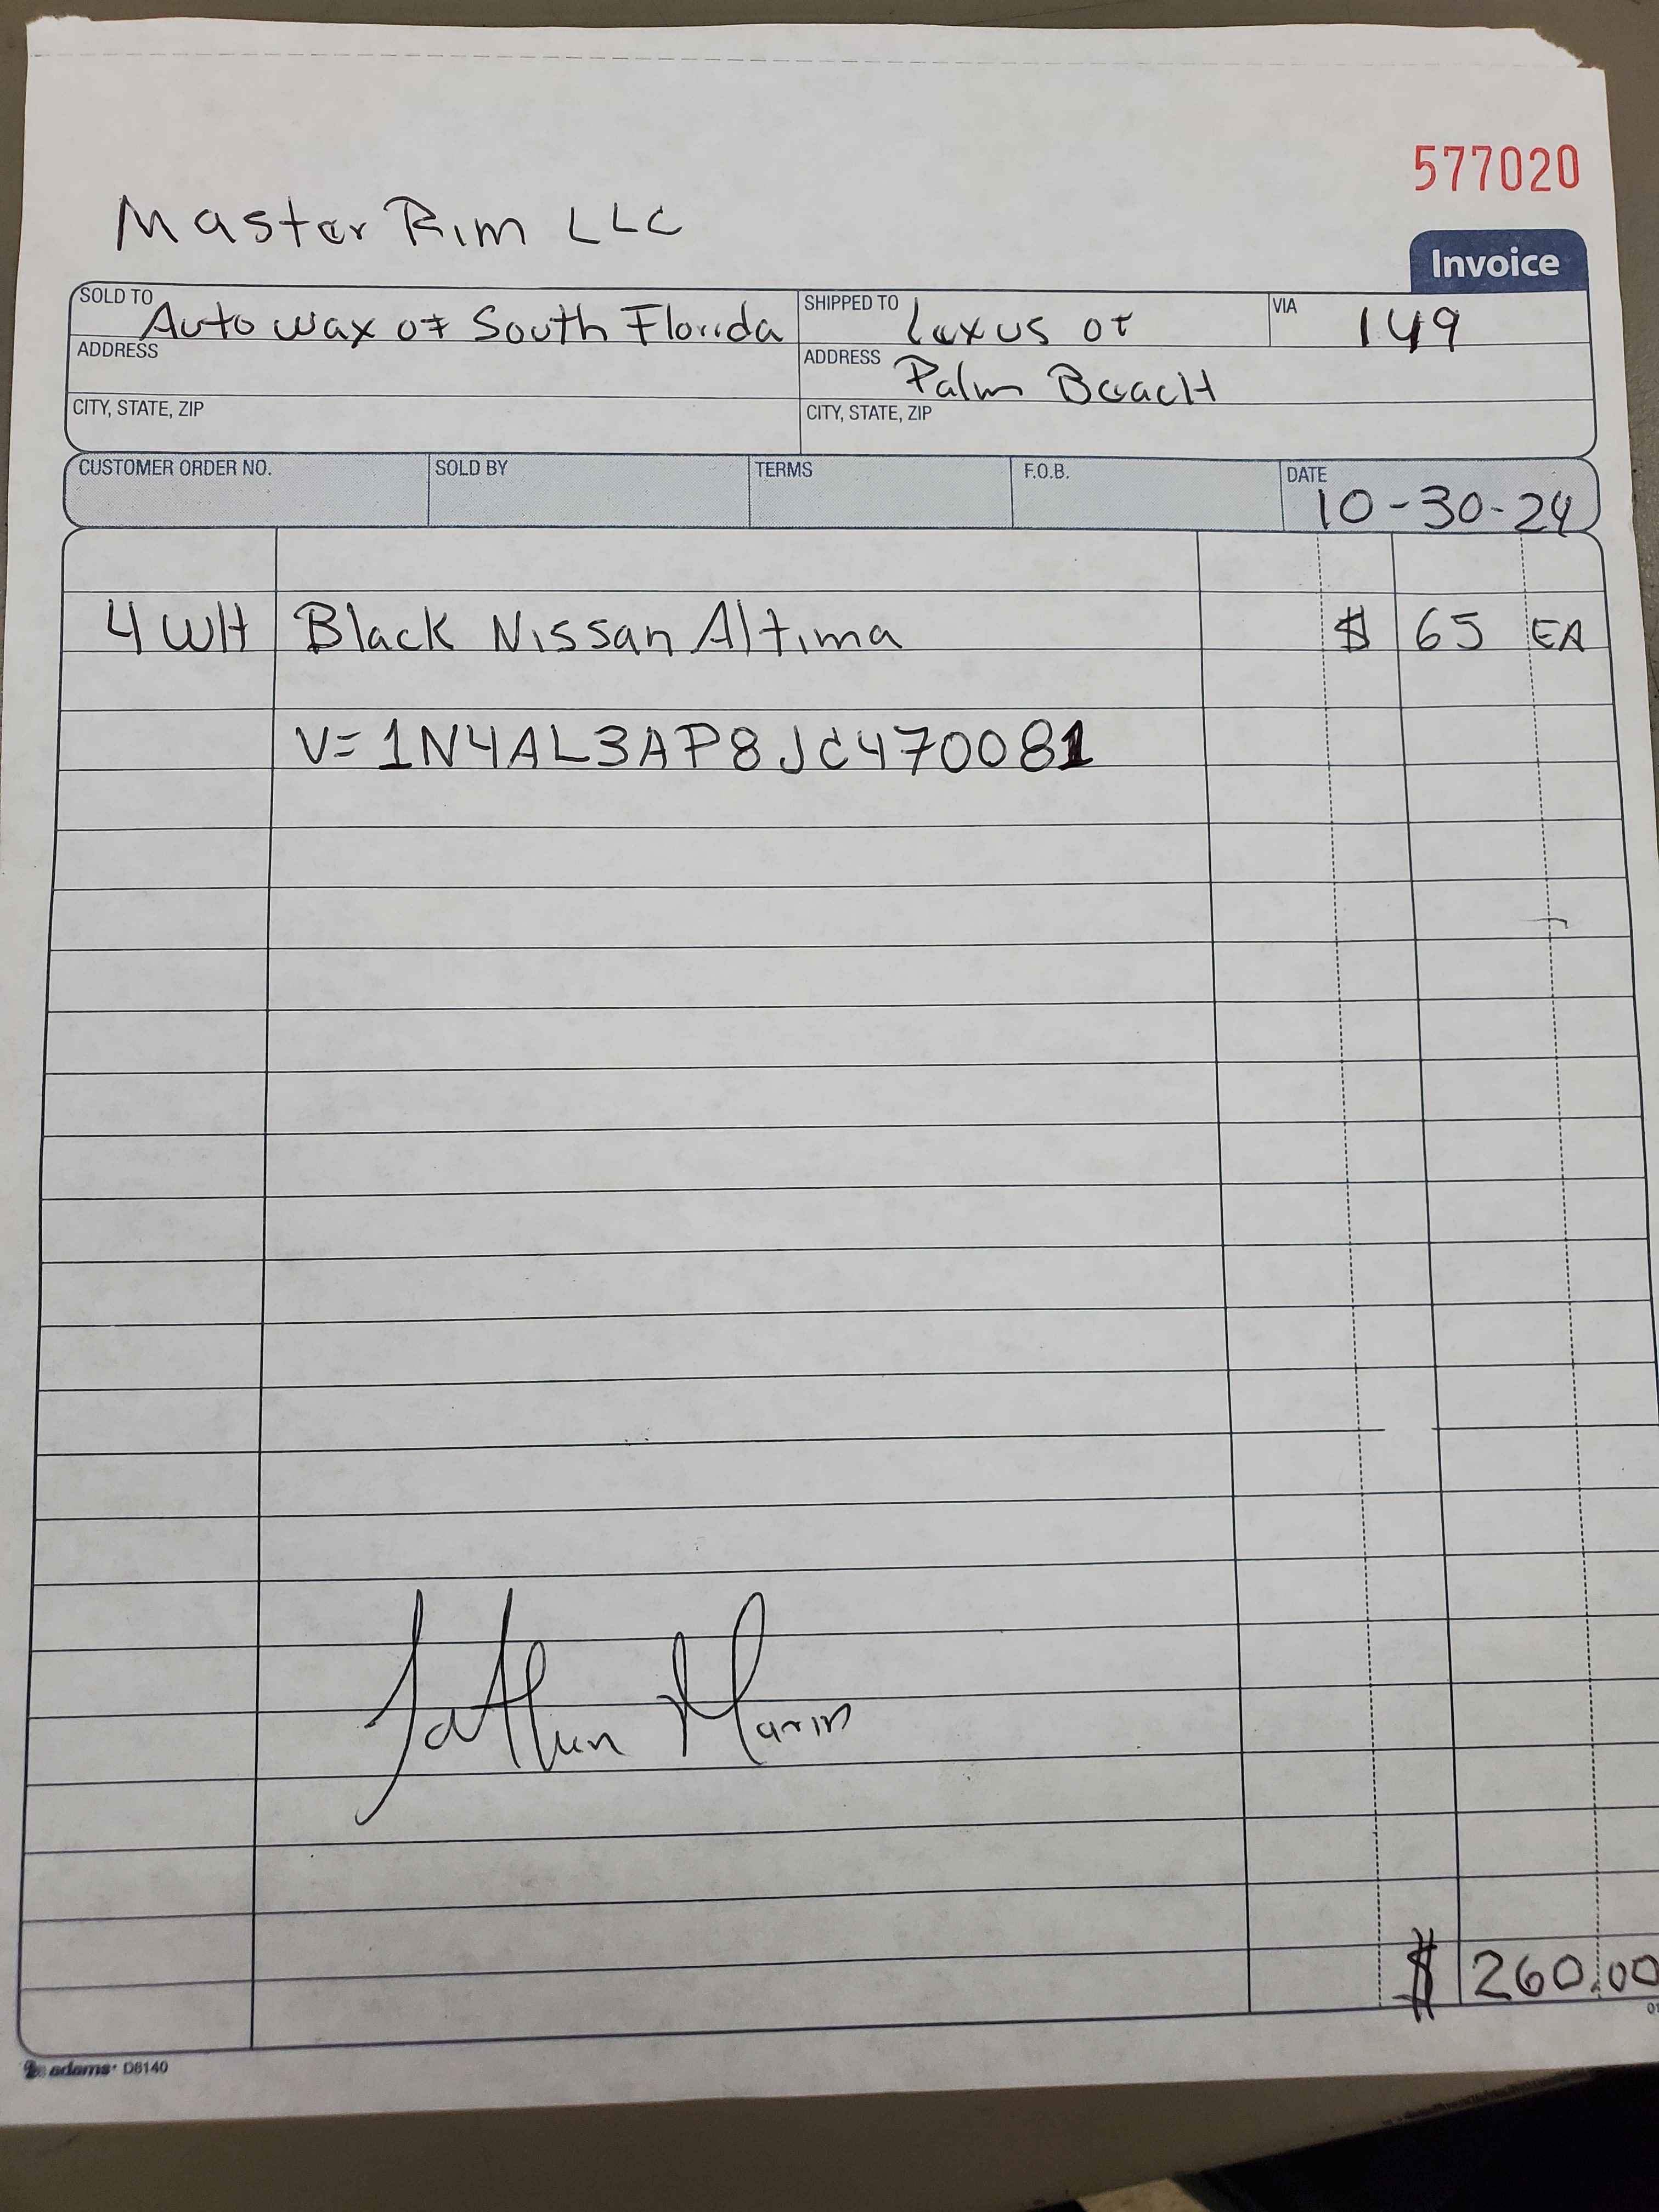 577020
Master Rim LLC
Invoice
SOLD TO Auto wax of South Florida
SHIPPED TO Lexus of
VIA 149
ADDRESS
ADDRESS Palm Beach
CITY, STATE, ZIP
CITY, STATE, ZIP
CUSTOMER ORDER NO. SOLD BY TERMS F.O.B. DATE 10-30-24
4 WH Black Nissan Altima $ 65 EA
V=1N4AL3AP8JC470081
Marin
$ 260.00
adams D8140